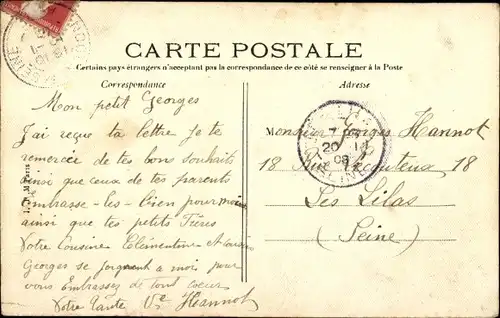 CARTE POSTALE
Certains pays étrangers n'acceptant pas la correspondance de ce côté se renseigner à la Poste
Correspondance
Adresse
Mon petit Georges
J'ai reçue ta lettre Je te
remercée de tes bons souhaits
ainsi que ceux de tes parents
Embrasse-les-bien pour moi
ainsi que tes petits Frères
Votre Cousine Clémentine et Cousin
Georges se joignent a moi pour
vous Embrassez de tout coeur
Votre Tante Vve Hannot
Monsieur Georges Hannot
18 Rue 18
Les Lilas
(Seine)
7
20 - 1
08
SEINE